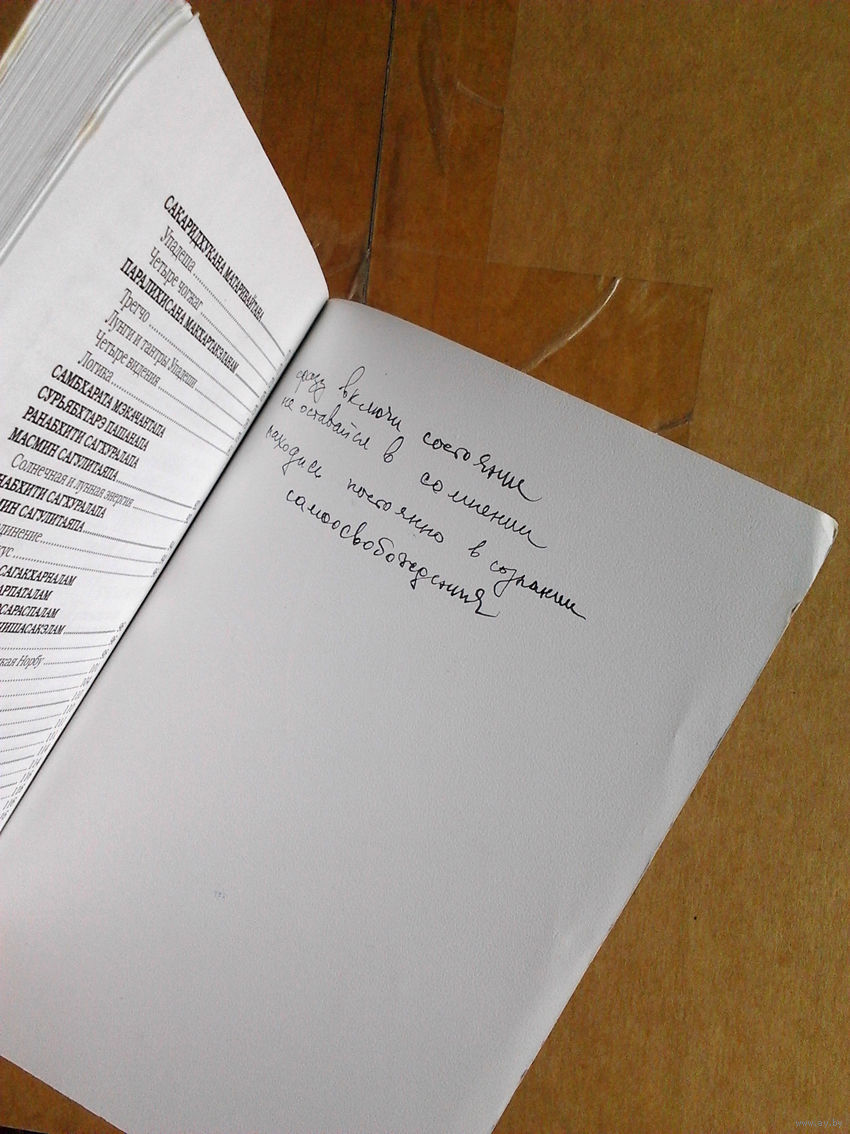 САКАРИДХУКАНА МАГАРИНАЙГАНА
Упадеша
Четыре чогжаг
ПАРАЛИХИСАНА МАКХАРТАКЭЛАНАМ
Трегчо
Лунги и тантры Упадеши
Четыре видения
Логика
САМБХАРАТА МЭКАЧАНТАПА
СУРЪЯБХТАРЭ ПАШАНАПА
РАНАБХИТИ САГХУРАЛАПА
МАСМИН САГУЛИТАЯПА
Солнечная и лунная энергия
НАБХИТИ САГХУРАЛАПА
МИН САГУЛИТАЯПА
динение
кус
САГАКХАРНАЛАМ
АРПАТАЛАМ
САРАСПАЛАМ
НИШАСАКЭЛАМ
кая Норбу
сразу включи состояние
не оставайся в сомнении
находись постоянно в сознании
самоосвобождения
www.ay.by